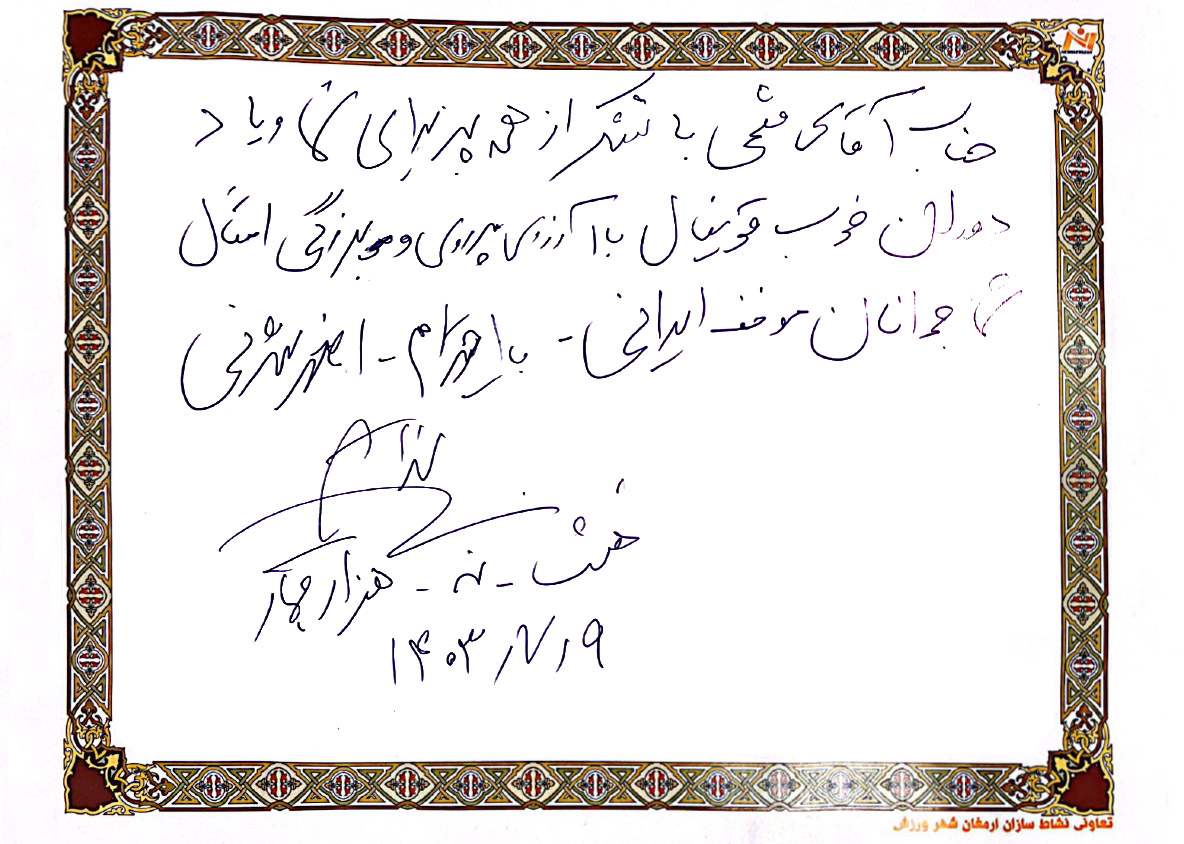 جناب آقای فتحی با تشکر از همه پذیرایی شما و یاد
دوران خوب فوتبال با آرزوی پیروزی و بزرگی امثال
شما جوانان موفق ایرانی - با احترام - اصغر شرفی
هشت - نه - هزار چهار
۱۴۰۳
تعاونی نشاط سازان ارمغان شهر ورزش